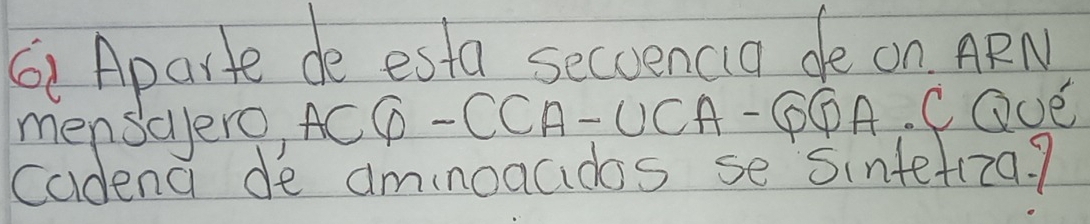 6) Aparte de esta secuencia de un. ARN
mensajero, ACG - CCA - UCA - GGA. ¿ Qué
Cadena de aminoacidos se sintetiza?